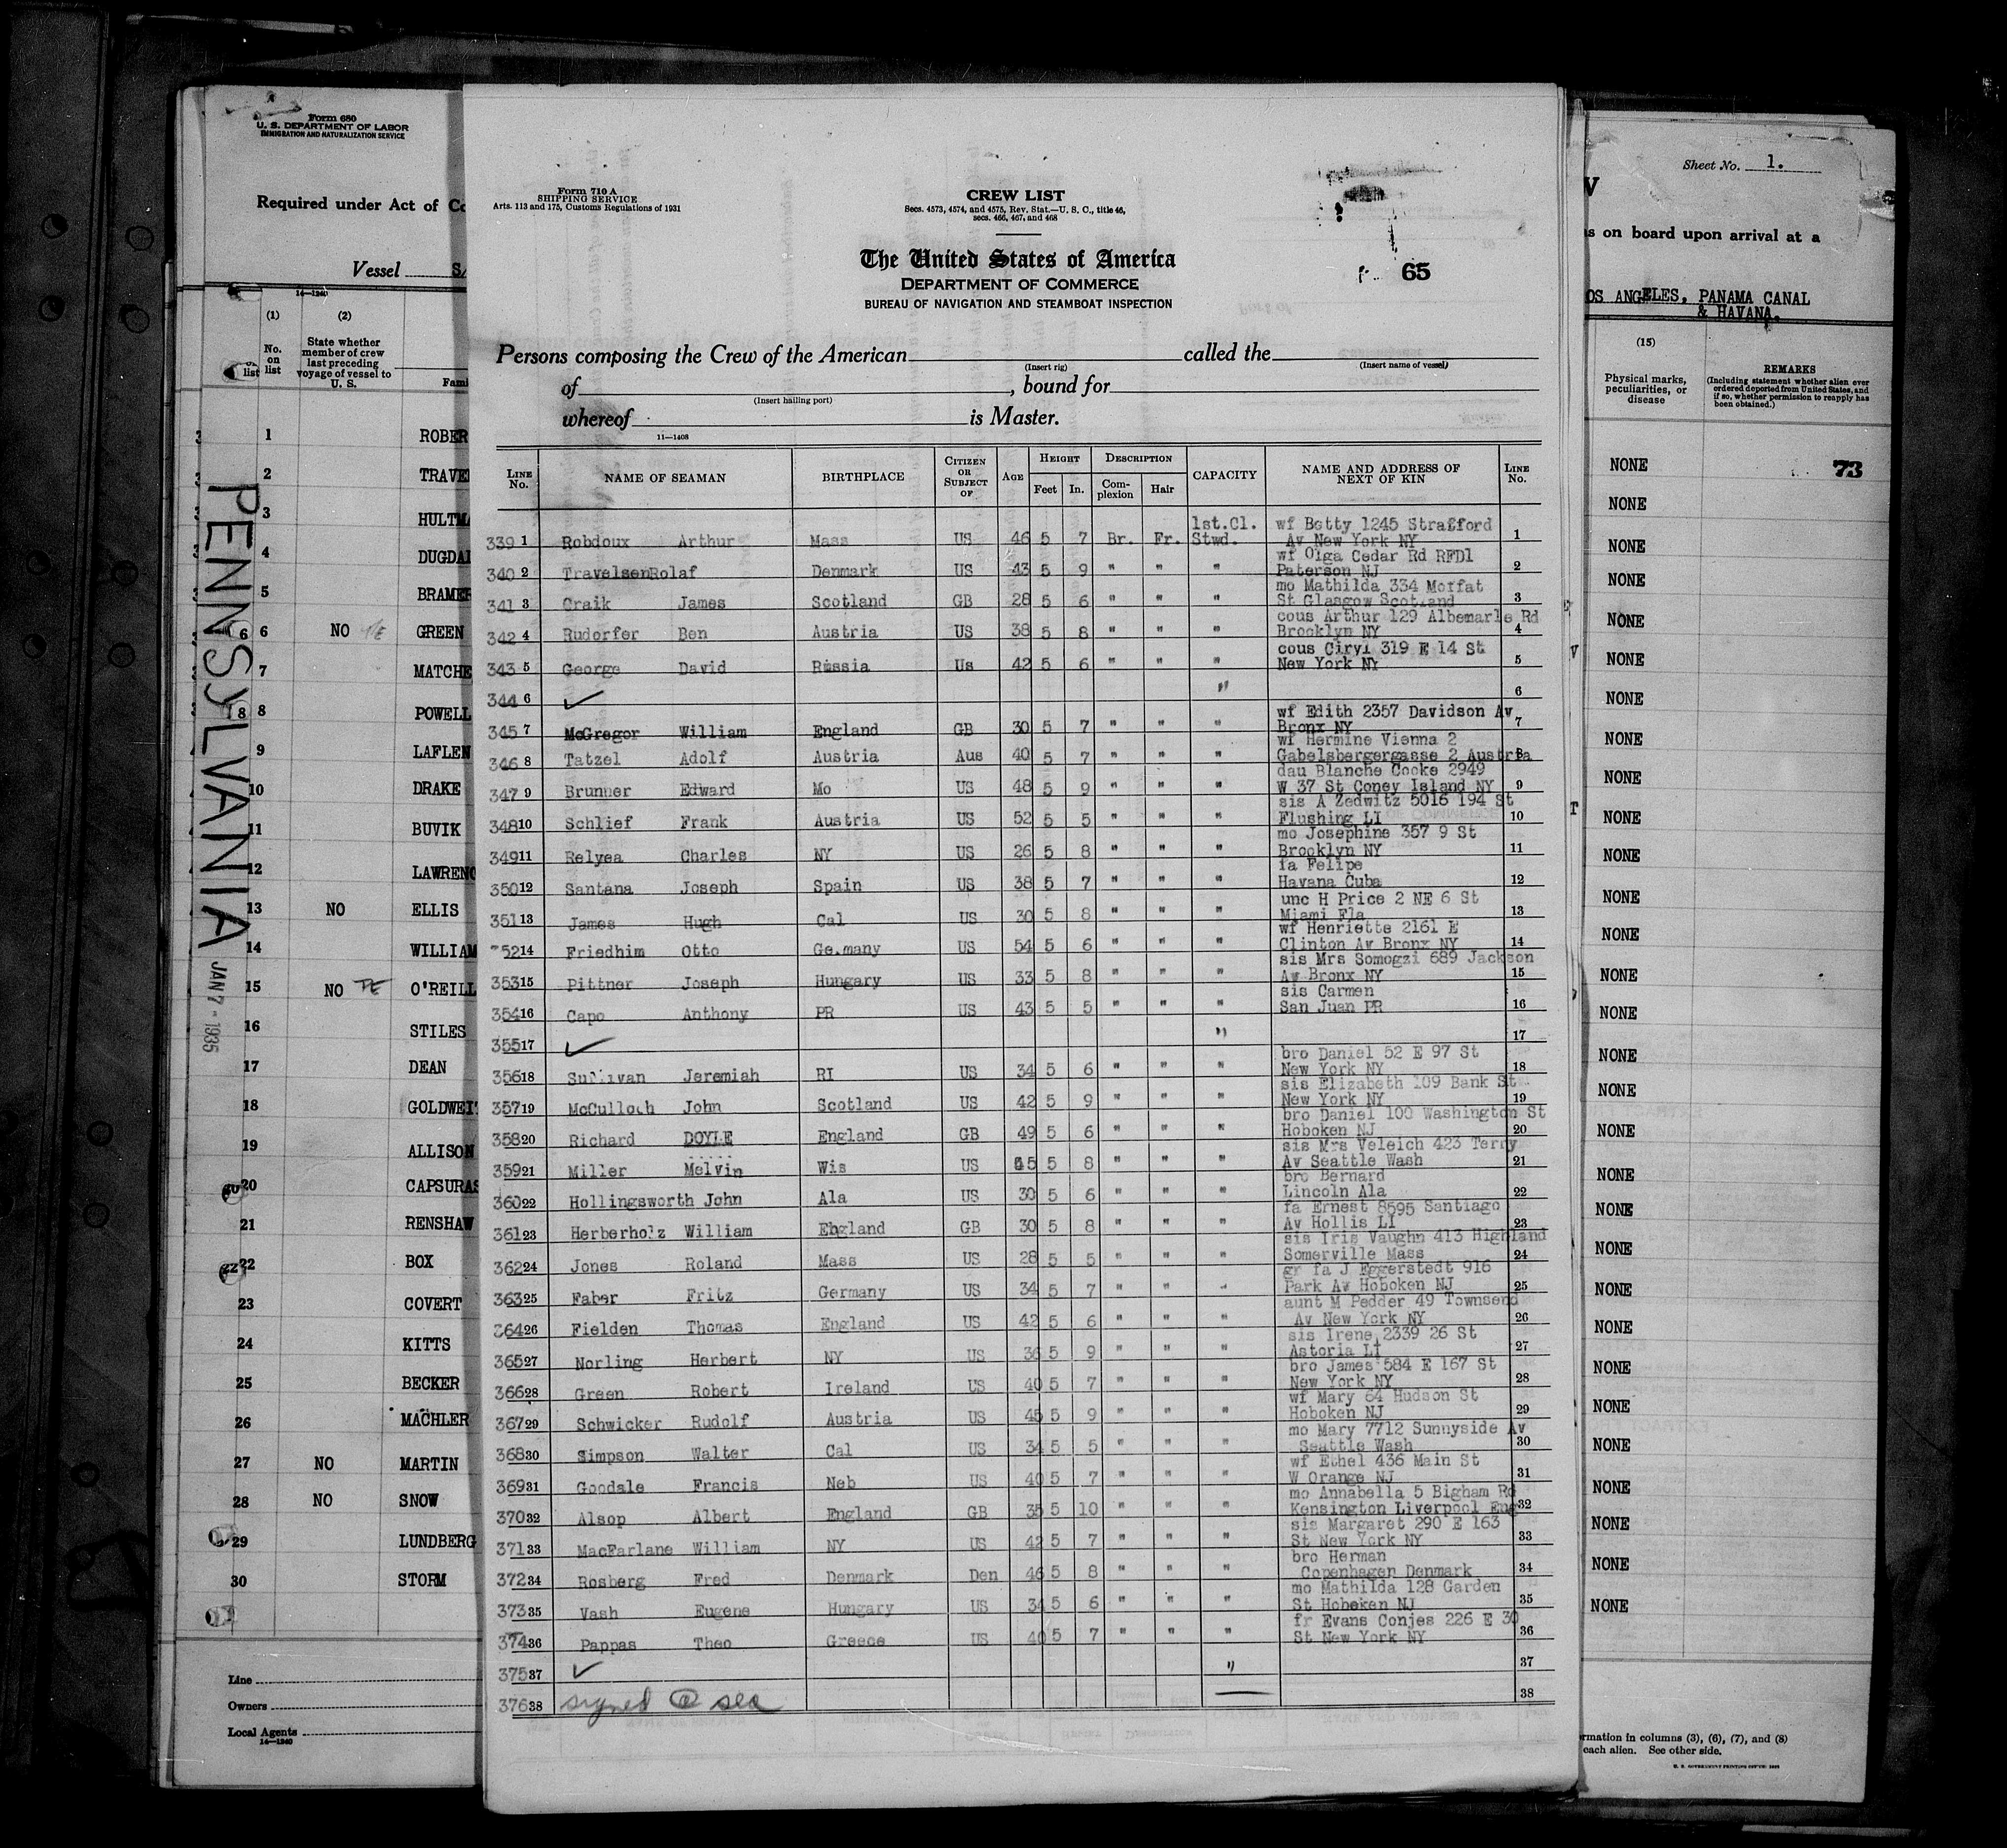 Form 680
U. S. DEPARTMENT OF LABOR
IMMIGRATION AND NATURALIZATION SERVICE
Required under Act of Co
Vessel S/
14—1240
(1) (2)
No. on list
State whether member of crew last preceding voyage of vessel to U. S.
Fami
1 ROBER
2 TRAVE
3 HULTM
4 DUGDA
5 BRAMER
6 6 NO GREEN
7 MATCHE
8 8 POWELL
9 LAFLEN
10 DRAKE
11 BUVIK
12 LAWRENC
13 NO ELLIS
14 WILLIAM
15 NO O'REILL
16 STILES
17 DEAN
18 GOLDWEI
19 ALLISON
20 CAPSURAS
21 RENSHAW
22 BOX
23 COVERT
24 KITTS
25 BECKER
26 MACHLER
27 NO MARTIN
28 NO SNOW
29 LUNDBERG
30 STORM
PENNSYLVANIA
JAN 7 - 1935
Line
Owners
Local Agents
14—1240
Form 710 A
SHIPPING SERVICE
Arts. 113 and 175, Customs Regulations of 1931
CREW LIST
Secs. 4573, 4574, and 4575, Rev. Stat.—U. S. C., title 46,
secs. 466, 467, and 468
The United States of America
DEPARTMENT OF COMMERCE
BUREAU OF NAVIGATION AND STEAMBOAT INSPECTION
65
Persons composing the Crew of the American called the
(Insert rig) (Insert name of vessel)
of , bound for
(Insert hailing port)
whereof is Master.
11—1408
LINE No. NAME OF SEAMAN BIRTHPLACE CITIZEN OR SUBJECT OF AGE HEIGHT Feet In. DESCRIPTION Complexion Hair CAPACITY NAME AND ADDRESS OF NEXT OF KIN LINE No.
339 1 Robdoux Arthur Mass US 46 5 7 Br. Fr. 1st.Cl. Stwd. wf Betty 1245 Strafford Av New York NY 1
340 2 TravelsenRolaf Denmark US 43 5 9 " " " wf Olga Cedar Rd RFD1 Paterson NJ 2
341 3 Craik James Scotland GB 28 5 6 " " " mo Mathilda 334 Moffat St Glasgow Scotland 3
342 4 Rudorfer Ben Austria US 38 5 8 " " " cous Arthur 129 Albemarle Rd Brooklyn NY 4
343 5 George David Russia Us 42 5 6 " " " cous Ciryl 319 E 14 St New York NY 5
344 6 ✓ " 6
345 7 McGregor William England GB 30 5 7 " " " wf Edith 2357 Davidson Av Bronx NY 7
346 8 Tatzel Adolf Austria Aus 40 5 7 " " " wf Hermine Vienna 2 Gabelsbergergasse 2 Austria 8
347 9 Brunner Edward Mo US 48 5 9 " " " dau Blanche Cooke 2949 W 37 St Coney Island NY 9
348 10 Schlief Frank Austria US 52 5 5 " " " sis A Zedwitz 5016 194 St Flushing LI 10
349 11 Relyea Charles NY US 26 5 8 " " " mo Josephine 357 9 St Brooklyn NY 11
350 12 Santana Joseph Spain US 38 5 7 " " " fa Felipe Havana Cuba 12
351 13 James Hugh Cal US 30 5 8 " " " unc H Price 2 NE 6 St Miami Fla 13
352 14 Friedhim Otto Ge.many US 54 5 6 " " " wf Henriette 2161 E Clinton Av Bronx NY 14
353 15 Pittner Joseph Hungary US 33 5 8 " " " sis Mrs Somogzi 689 Jackson Av Bronx NY 15
354 16 Capo Anthony PR US 43 5 5 " " " sis Carmen San Juan PR 16
355 17 ✓ " 17
356 18 Sullivan Jeremiah RI US 34 5 6 " " " bro Daniel 52 E 97 St New York NY 18
357 19 McCulloch John Scotland US 42 5 9 " " " sis Elizabeth 109 Bank St New York NY 19
358 20 Richard DOYLE England GB 49 5 6 " " " bro Daniel 100 Washington St Hoboken NJ 20
359 21 Miller Melvin Wis US 45 5 8 " " " sis Mrs Veleich 423 Terry Av Seattle Wash 21
360 22 Hollingsworth John Ala US 30 5 6 " " " bro Bernard Lincoln Ala 22
361 23 Herberholz William England GB 30 5 8 " " " fa Ernest 8595 Santiago Av Hollis LI 23
362 24 Jones Roland Mass US 28 5 5 " " " sis Iris Vaughn 413 Highland Somerville Mass 24
363 25 Faber Fritz Germany US 34 5 7 " " " gr fa J Eggerstedt 916 Park Av Hoboken NJ 25
364 26 Fielden Thomas England US 42 5 6 " " " aunt M Pedder 49 Townsend Av New York NY 26
365 27 Norling Herbert NY US 36 5 9 " " " sis Irene 2339 26 St Astoria LI 27
366 28 Green Robert Ireland US 40 5 7 " " " bro James 584 E 167 St New York NY 28
367 29 Schwicker Rudolf Austria US 45 5 9 " " " wf Mary 64 Hudson St Hoboken NJ 29
368 30 Simpson Walter Cal US 34 5 5 " " " mo Mary 7712 Sunnyside Av Seattle Wash 30
369 31 Goodale Francis Neb US 40 5 7 " " " wf Ethel 436 Main St W Orange NJ 31
370 32 Alsop Albert England GB 35 5 10 " " " mo Annabella 5 Bigham Rd Kensington Liverpool Eng 32
371 33 MacFarlane William NY US 42 5 7 " " " sis Margaret 290 E 163 St New York NY 33
372 34 Rosberg Fred Denmark Den 46 5 8 " " " bro Herman Copenhagen Denmark 34
373 35 Vash Eugene Hungary US 34 5 6 " " " mo Mathilda 128 Garden St Hoboken NJ 35
374 36 Pappas Theo Greece US 40 5 7 " " " fr Evans Conjes 226 E 30 St New York NY 36
375 37 ✓ " 37
376 38 signed @ sea 38
Sheet No. 1.
s on board upon arrival at a
OS ANGELES, PANAMA CANAL
& HAVANA.
(15)
Physical marks, peculiarities, or disease
REMARKS
(Including statement whether alien ever ordered deported from United States, and if so, whether permission to reapply has been obtained.)
NONE 73
NONE
NONE
NONE
NONE
NONE
NONE
NONE
NONE
NONE
NONE
NONE
NONE
NONE
NONE
NONE
NONE
NONE
NONE
NONE
NONE
NONE
NONE
NONE
NONE
NONE
NONE
NONE
NONE
NONE
rmation in columns (3), (6), (7), and (8)
each alien. See other side.